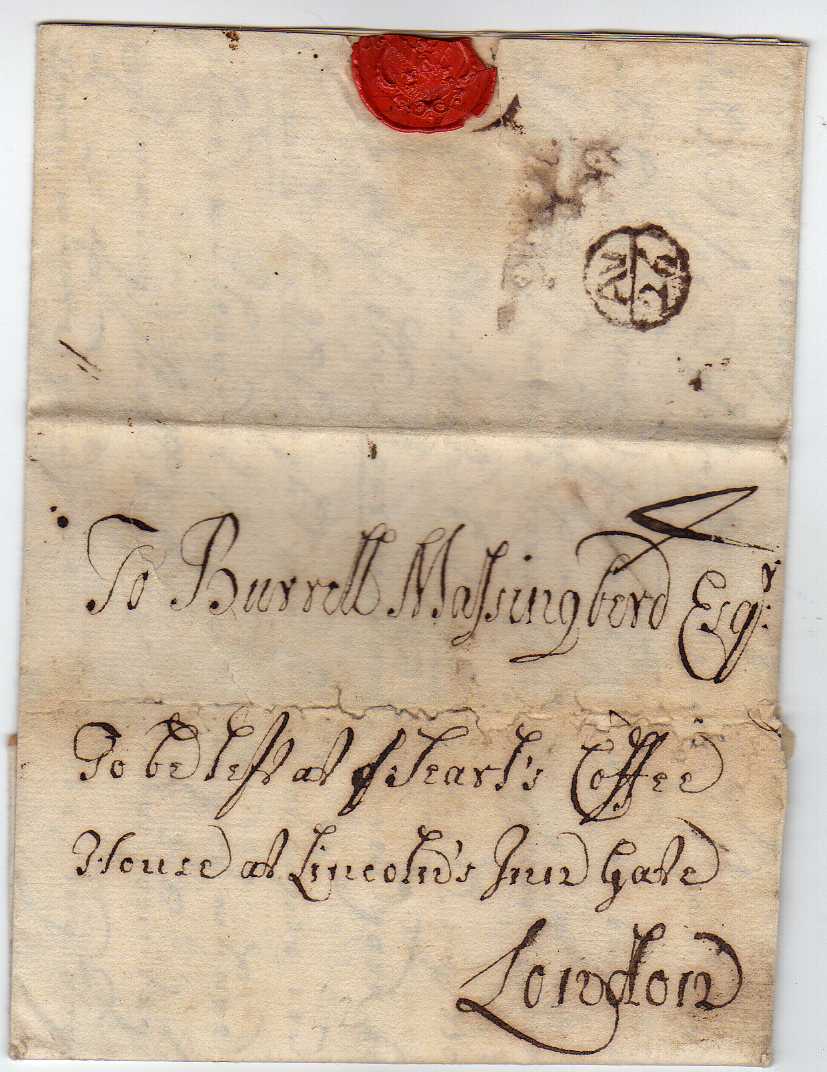 AV
26
4
To Burrell Massingberd Esqr:
To be left at Searl's Coffee
House at Lincoln's Inn Gate
London